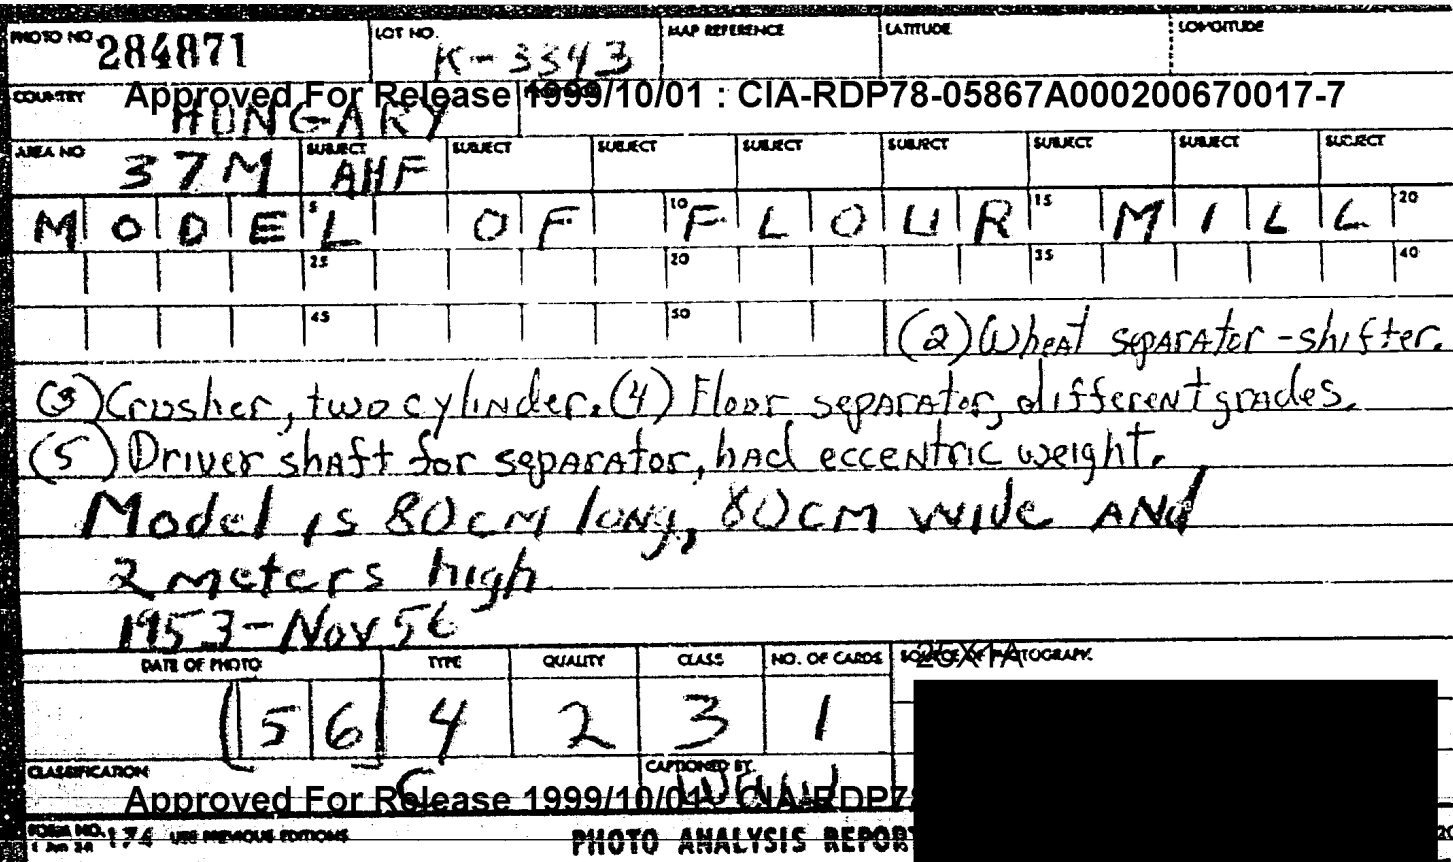 PHOTO NO. 284871 LOT NO. K-3343 MAP REFERENCE LATITUDE LONGITUDE
COUNTRY HUNGARY
Approved For Release 1999/10/01 : CIA-RDP78-05867A000200670017-7
AREA NO 37M SUBJECT AHF SUBJECT SUBJECT SUBJECT SUBJECT SUBJECT SUBJECT SUBJECT
MODEL OF FLOUR MILL 5 10 15 20
25 20 35 40
45 50 (2) Wheat separator - shifter.
(3) Crusher, two cylinder. (4) Floor separator, different grades.
(5) Driver shaft for separator, had eccentric weight.
Model is 80cm long, 80cm wide and
2 meters high
1953-Nov 56
DATE OF PHOTO TYPE QUALITY CLASS NO. OF CARDS SOURCE OF PHOTOGRAPH 25X1A
(56) 4 2 3 1
CLASSIFICATION C CAPTIONED BY
Approved For Release 1999/10/01 : CIA-RDP78
FORM NO. 174 USE PREVIOUS EDITIONS PHOTO ANALYSIS REPORT